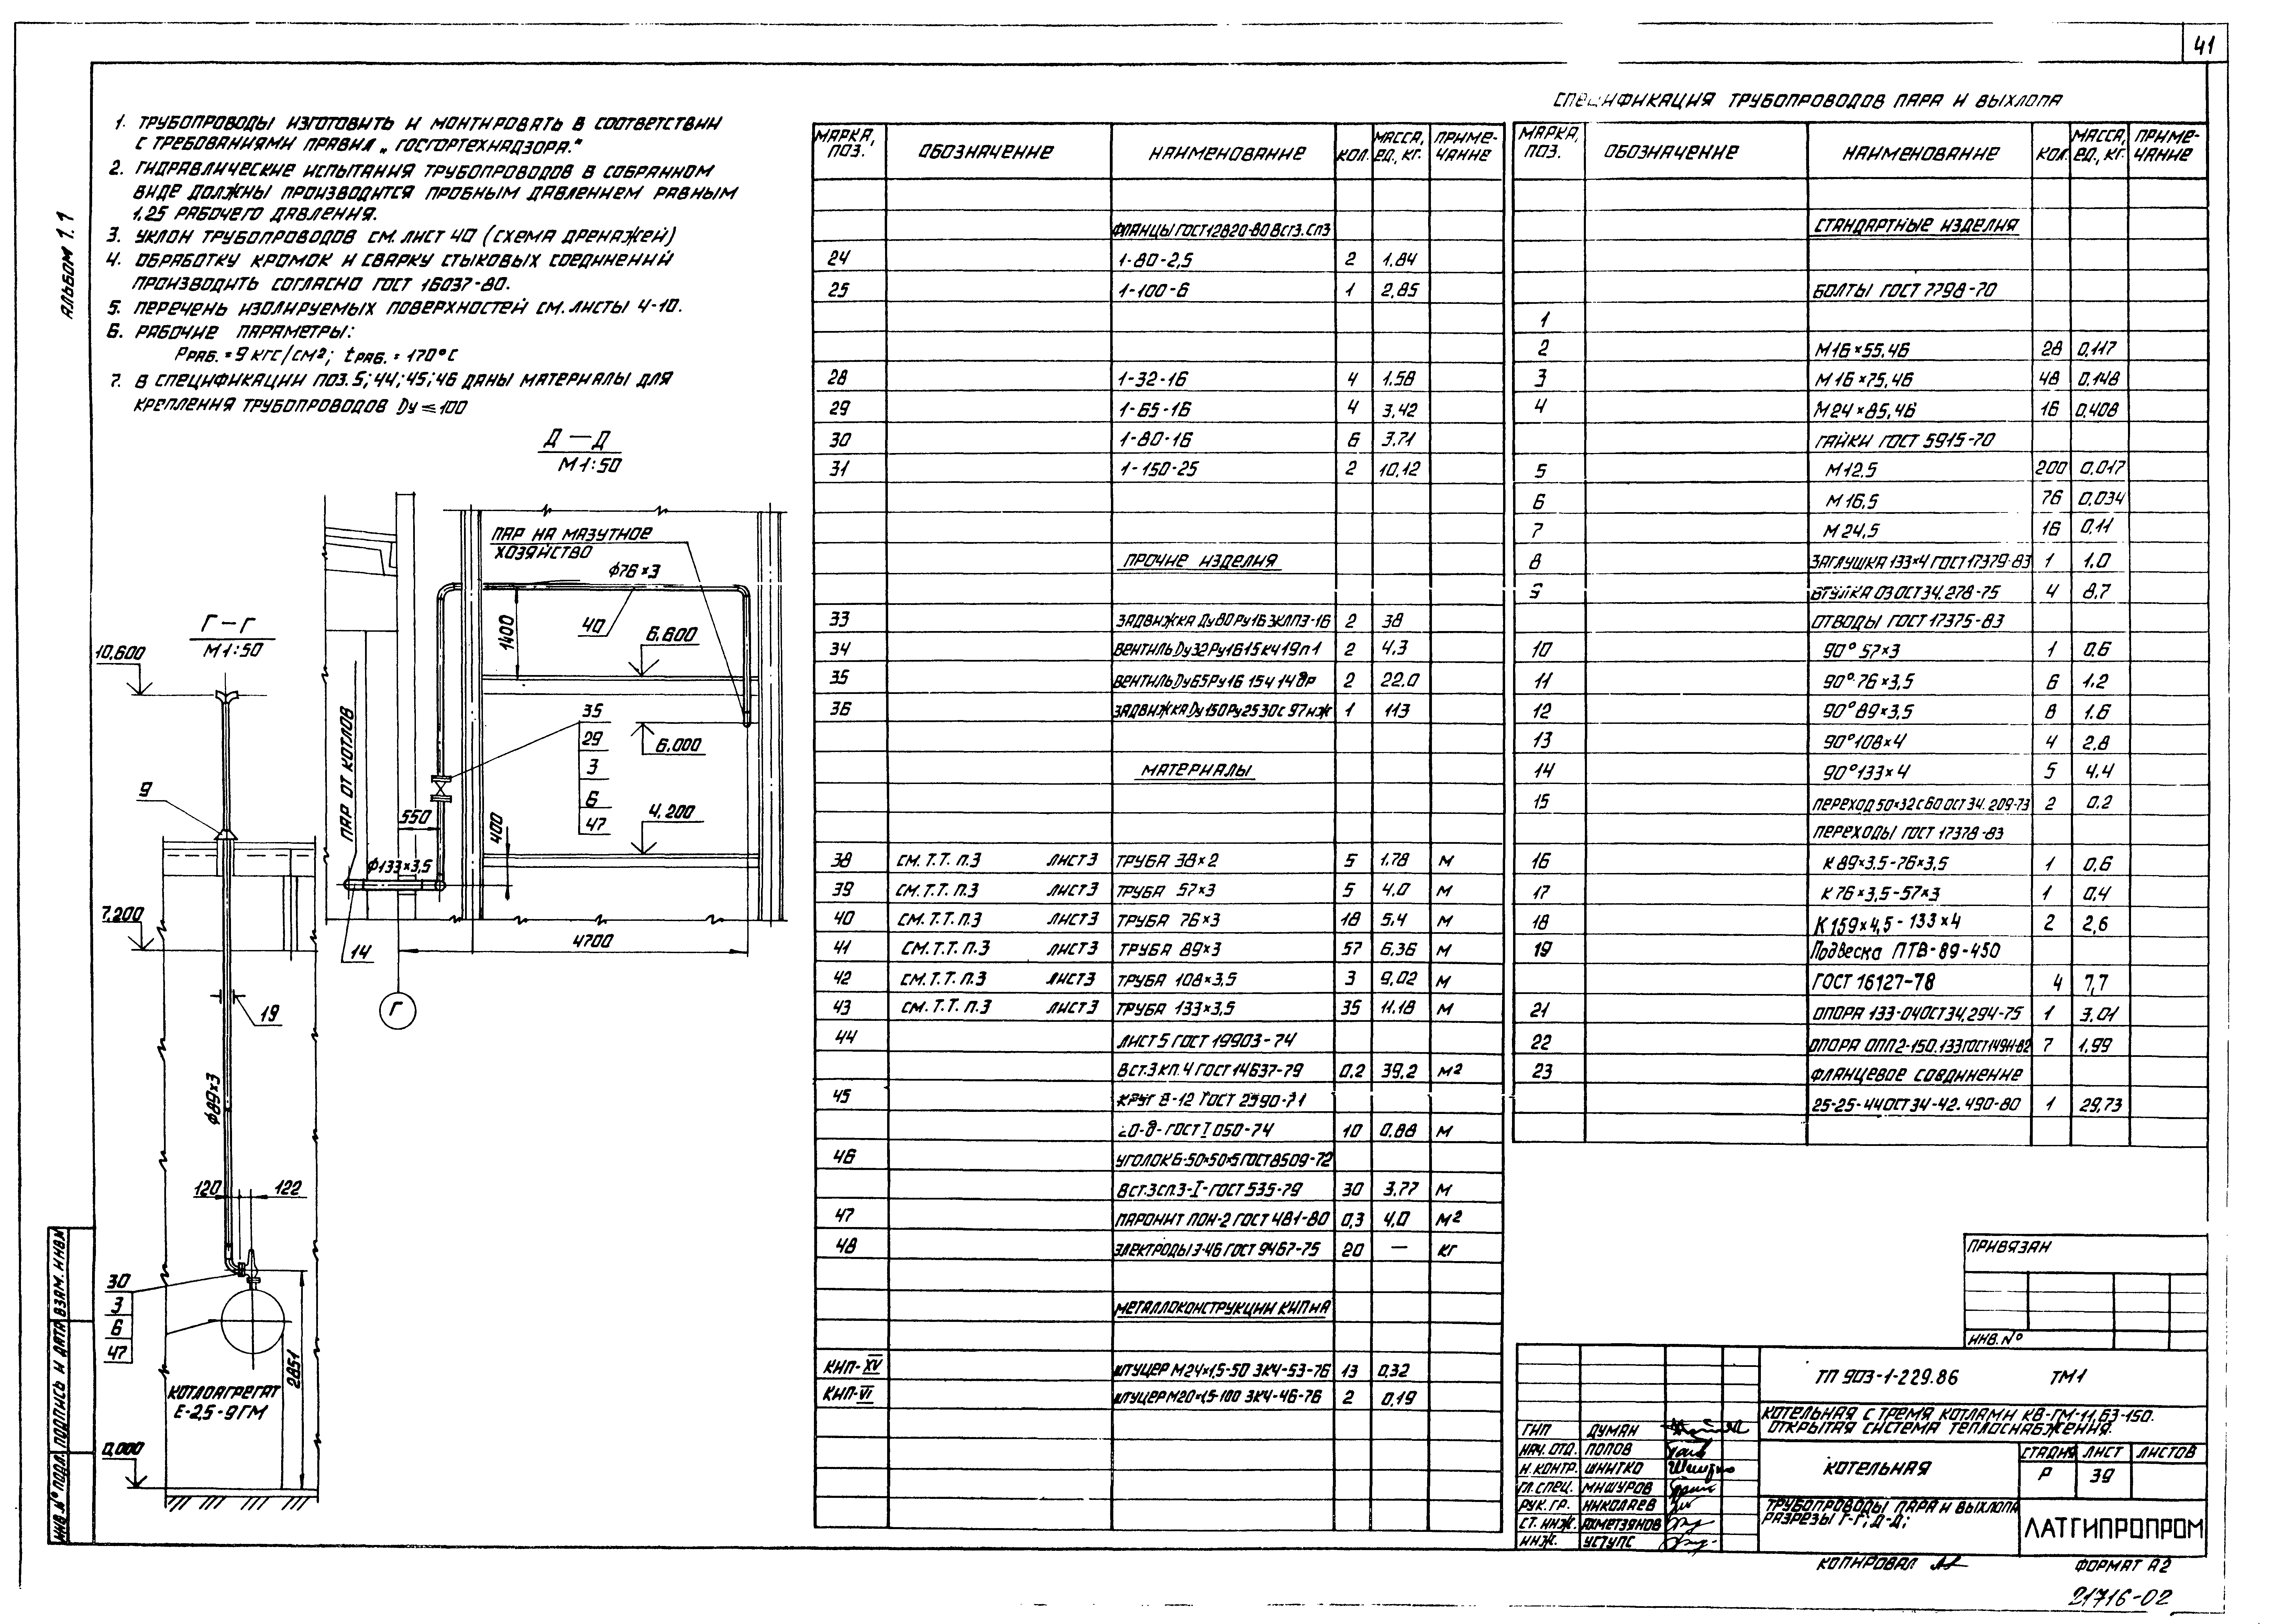 41
АЛЬБОМ 1.1
1. ТРУБОПРОВОДЫ ИЗГОТОВИТЬ И МОНТИРОВАТЬ В СООТВЕТСТВИИ
С ТРЕБОВАНИЯМИ ПРАВИЛ „ ГОСГОРТЕХНАДЗОРА."
2. ГИДРАВЛИЧЕСКИЕ ИСПЫТАНИЯ ТРУБОПРОВОДОВ В СОБРАННОМ
ВИДЕ ДОЛЖНЫ ПРОИЗВОДИТСЯ ПРОБНЫМ ДАВЛЕНИЕМ РАВНЫМ
1,25 РАБОЧЕГО ДАВЛЕНИЯ.
3. УКЛОН ТРУБОПРОВОДОВ СМ. ЛИСТ 40 (СХЕМА ДРЕНАЖЕЙ)
4. ОБРАБОТКУ КРОМОК И СВАРКУ СТЫКОВЫХ СОЕДИНЕНИЙ
ПРОИЗВОДИТЬ СОГЛАСНО ГОСТ 16037-80.
5. ПЕРЕЧЕНЬ ИЗОЛИРУЕМЫХ ПОВЕРХНОСТЕЙ СМ. ЛИСТЫ 4-10.
6. РАБОЧИЕ ПАРАМЕТРЫ:
РРАБ. = 9 КГС/СМ²; tРАБ. = 170°С
7. В СПЕЦИФИКАЦИИ ПОЗ. 5; 44; 45; 46 ДАНЫ МАТЕРИАЛЫ ДЛЯ
КРЕПЛЕНИЯ ТРУБОПРОВОДОВ Dу ≤ 100
Д — Д
М 1:50
ПАР НА МАЗУТНОЕ
ХОЗЯЙСТВО
ф76×3
40
1400
6.600
6.000
35
29
3
6
47
4.200
400
550
ПАР ОТ КОТЛОВ
ф133×3,5
14
4700
Г
Г — Г
М 1:50
10.600
9
7.200
19
ф89×3
120
122
30
3
6
47
2851
КОТЛОАГРЕГАТ
Е-2,5-9ГМ
0.000
МАРКА, ПОЗ. ОБОЗНАЧЕНИЕ НАИМЕНОВАНИЕ КОЛ. МАССА, ЕД., КГ. ПРИМЕ-ЧАНИЕ
ФЛАНЦЫ ГОСТ 12820-80 Вст3.сп3
24 1-80-2,5 2 1,84
25 1-100-6 1 2,85
28 1-32-16 4 1.58
29 1-65-16 4 3,42
30 1-80-16 6 3.71
31 1-150-25 2 10,12
ПРОЧИЕ ИЗДЕЛИЯ
33 ЗАДВИЖКА Ду80 Ру16 ЗКЛПЭ-16 2 38
34 ВЕНТИЛЬ Dу32 Ру16 15кч19п1 2 4.3
35 ВЕНТИЛЬ Dу65 Ру16 15ч14бр 2 22.0
36 ЗАДВИЖКА Dу150 Ру25 30с97нж 1 113
МАТЕРИАЛЫ
38 СМ. Т.Т. П.3 ЛИСТ 3 ТРУБА 38×2 5 1.78 М
39 СМ. Т.Т. П.3 ЛИСТ 3 ТРУБА 57×3 5 4.0 М
40 СМ. Т.Т. П.3 ЛИСТ 3 ТРУБА 76×3 18 5,4 М
41 СМ. Т.Т. П.3 ЛИСТ 3 ТРУБА 89×3 57 6,36 М
42 СМ. Т.Т. П.3 ЛИСТ 3 ТРУБА 108×3,5 3 9,02 М
43 СМ. Т.Т. П.3 ЛИСТ 3 ТРУБА 133×3,5 35 11.18 М
44 ЛИСТ 5 ГОСТ 19903-74
Вст.3кп.4 ГОСТ 14637-79 0,2 39,2 М²
45 КРУГ В-12 ГОСТ 2590-71
20-б-ГОСТ 1050-74 10 0,88 М
46 УГОЛОК Б-50×50×5 ГОСТ 8509-72
Вст.3сп.3-I-ГОСТ 535-79 30 3.77 М
47 ПАРОНИТ ПОН-2 ГОСТ 481-80 0,3 4,0 М²
48 ЭЛЕКТРОДЫ Э-46 ГОСТ 9467-75 20 — КГ
МЕТАЛЛОКОНСТРУКЦИИ КИПиА
КИП-XV ШТУЦЕР М24×1,5-50 ЗК4-53-76 13 0,32
КИП-VI ШТУЦЕР М20×1,5-100 ЗК4-46-76 2 0,19
СПЕЦИФИКАЦИЯ ТРУБОПРОВОДОВ ПАРА И ВЫХЛОПА
МАРКА, ПОЗ. ОБОЗНАЧЕНИЕ НАИМЕНОВАНИЕ КОЛ. МАССА, ЕД., КГ. ПРИМЕ-ЧАНИЕ
СТАНДАРТНЫЕ ИЗДЕЛИЯ
БОЛТЫ ГОСТ 7798-70
1
2 М16×55,46 28 0,117
3 М16×75,46 48 0,148
4 М24×85,46 16 0,408
ГАЙКИ ГОСТ 5915-70
5 М12,5 200 0,017
6 М16,5 76 0,034
7 М24,5 16 0,11
8 ЗАГЛУШКА 133×4 ГОСТ 17379-83 1 1,0
9 ВТУЛКА 03 ОСТ 34.278-75 4 8,7
ОТВОДЫ ГОСТ 17375-83
10 90° 57×3 1 0.6
11 90° 76×3,5 6 1.2
12 90° 89×3,5 8 1.6
13 90° 108×4 4 2,8
14 90° 133×4 5 4.4
15 ПЕРЕХОД 50×32 С60 ОСТ 34.209-73 2 0.2
ПЕРЕХОДЫ ГОСТ 17378-83
16 К 89×3,5-76×3,5 1 0,6
17 К 76×3,5-57×3 1 0,4
18 К 159×4,5-133×4 2 2,6
19 Подвеска ПТВ-89-450
ГОСТ 16127-78 4 7,7
21 ОПОРА 133-04 ОСТ 34.294-75 1 3,01
22 ОПОРА ОПП2-150.133 ГОСТ 14911-82 7 1,99
23 ФЛАНЦЕВОЕ СОЕДИНЕНИЕ
25-25-44 ОСТ 34-42.490-80 1 29,73
ПРИВЯЗАН
ИНВ. №
ТП 903-1-229.86 ТМ1
КОТЕЛЬНАЯ С ТРЕМЯ КОТЛАМИ КВ-ГМ-11,63-150.
ОТКРЫТАЯ СИСТЕМА ТЕПЛОСНАБЖЕНИЯ.
ГИП ДУМАН
НАЧ. ОТД. ПОПОВ
Н. КОНТР. ШНИТКО
ГЛ. СПЕЦ. МИШУРОВ
РУК. ГР. НИКОЛАЕВ
СТ. ИНЖ. АХМЕТЗЯНОВ
ИНЖ. УСТУПС
КОТЕЛЬНАЯ
СТАДИЯ ЛИСТ ЛИСТОВ
Р 39
ТРУБОПРОВОДЫ ПАРА И ВЫХЛОПА
РАЗРЕЗЫ Г-Г; Д-Д;
ЛАТГИПРОПРОМ
КОПИРОВАЛ
ФОРМАТ А2
21716-02
ИНВ. № ПОДЛ. ПОДПИСЬ И ДАТА ВЗАМ. ИНВ. №